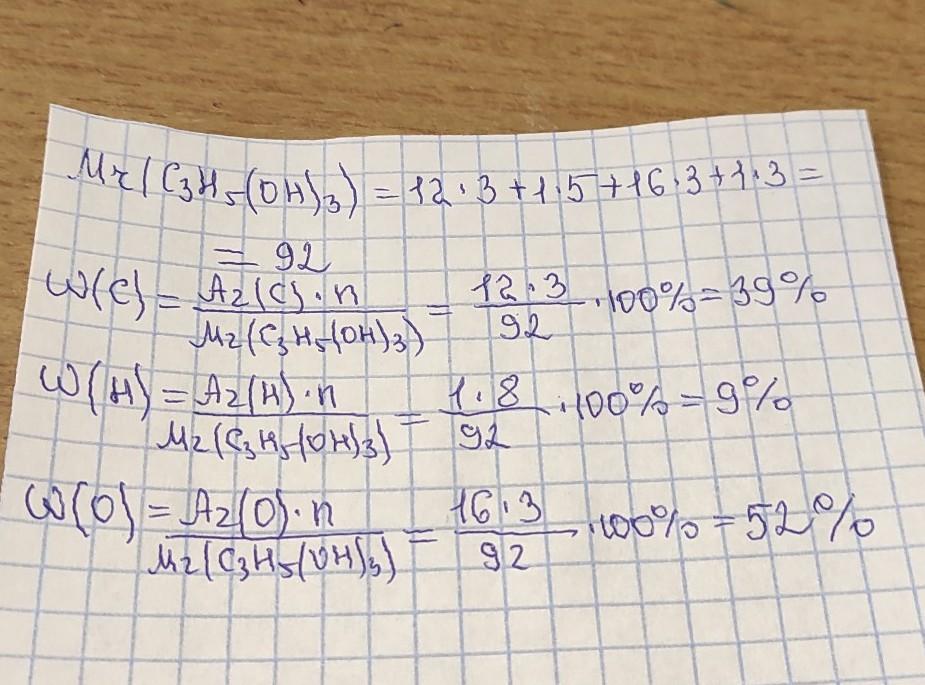 Mr(C₃H₅(OH)₃) = 12·3+1·5+16·3+1·3=
= 92
ω(C) = Ar(C)·n / Mr(C₃H₅(OH)₃) = 12·3 / 92 ·100% = 39%
ω(H) = Ar(H)·n / Mr(C₃H₅(OH)₃) = 1·8 / 92 ·100% = 9%
ω(O) = Ar(O)·n / Mr(C₃H₅(OH)₃) = 16·3 / 92 ·100% = 52%